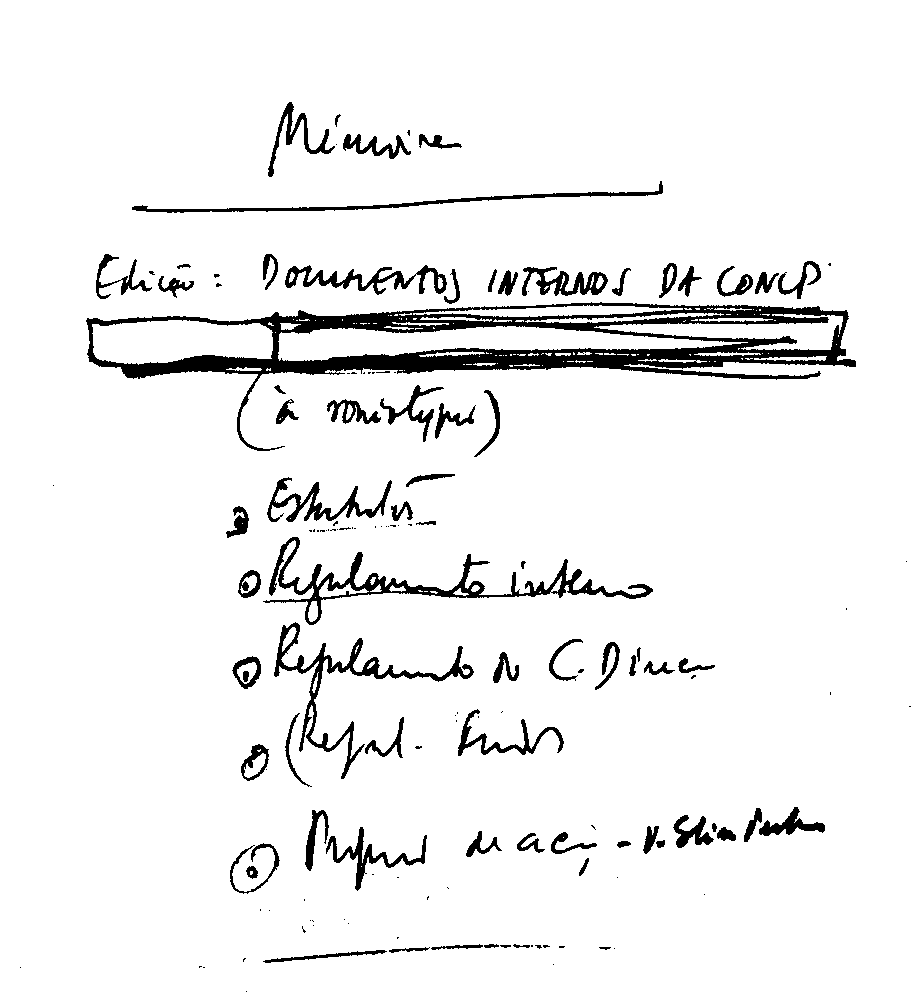 Mémoire
Edição: DOCUMENTOS INTERNOS DA CONCP
(à ronéotyper)
Estatutos
Regulamento interno
Regulamento do C. Direc
(Regul. Fundos
de acç -